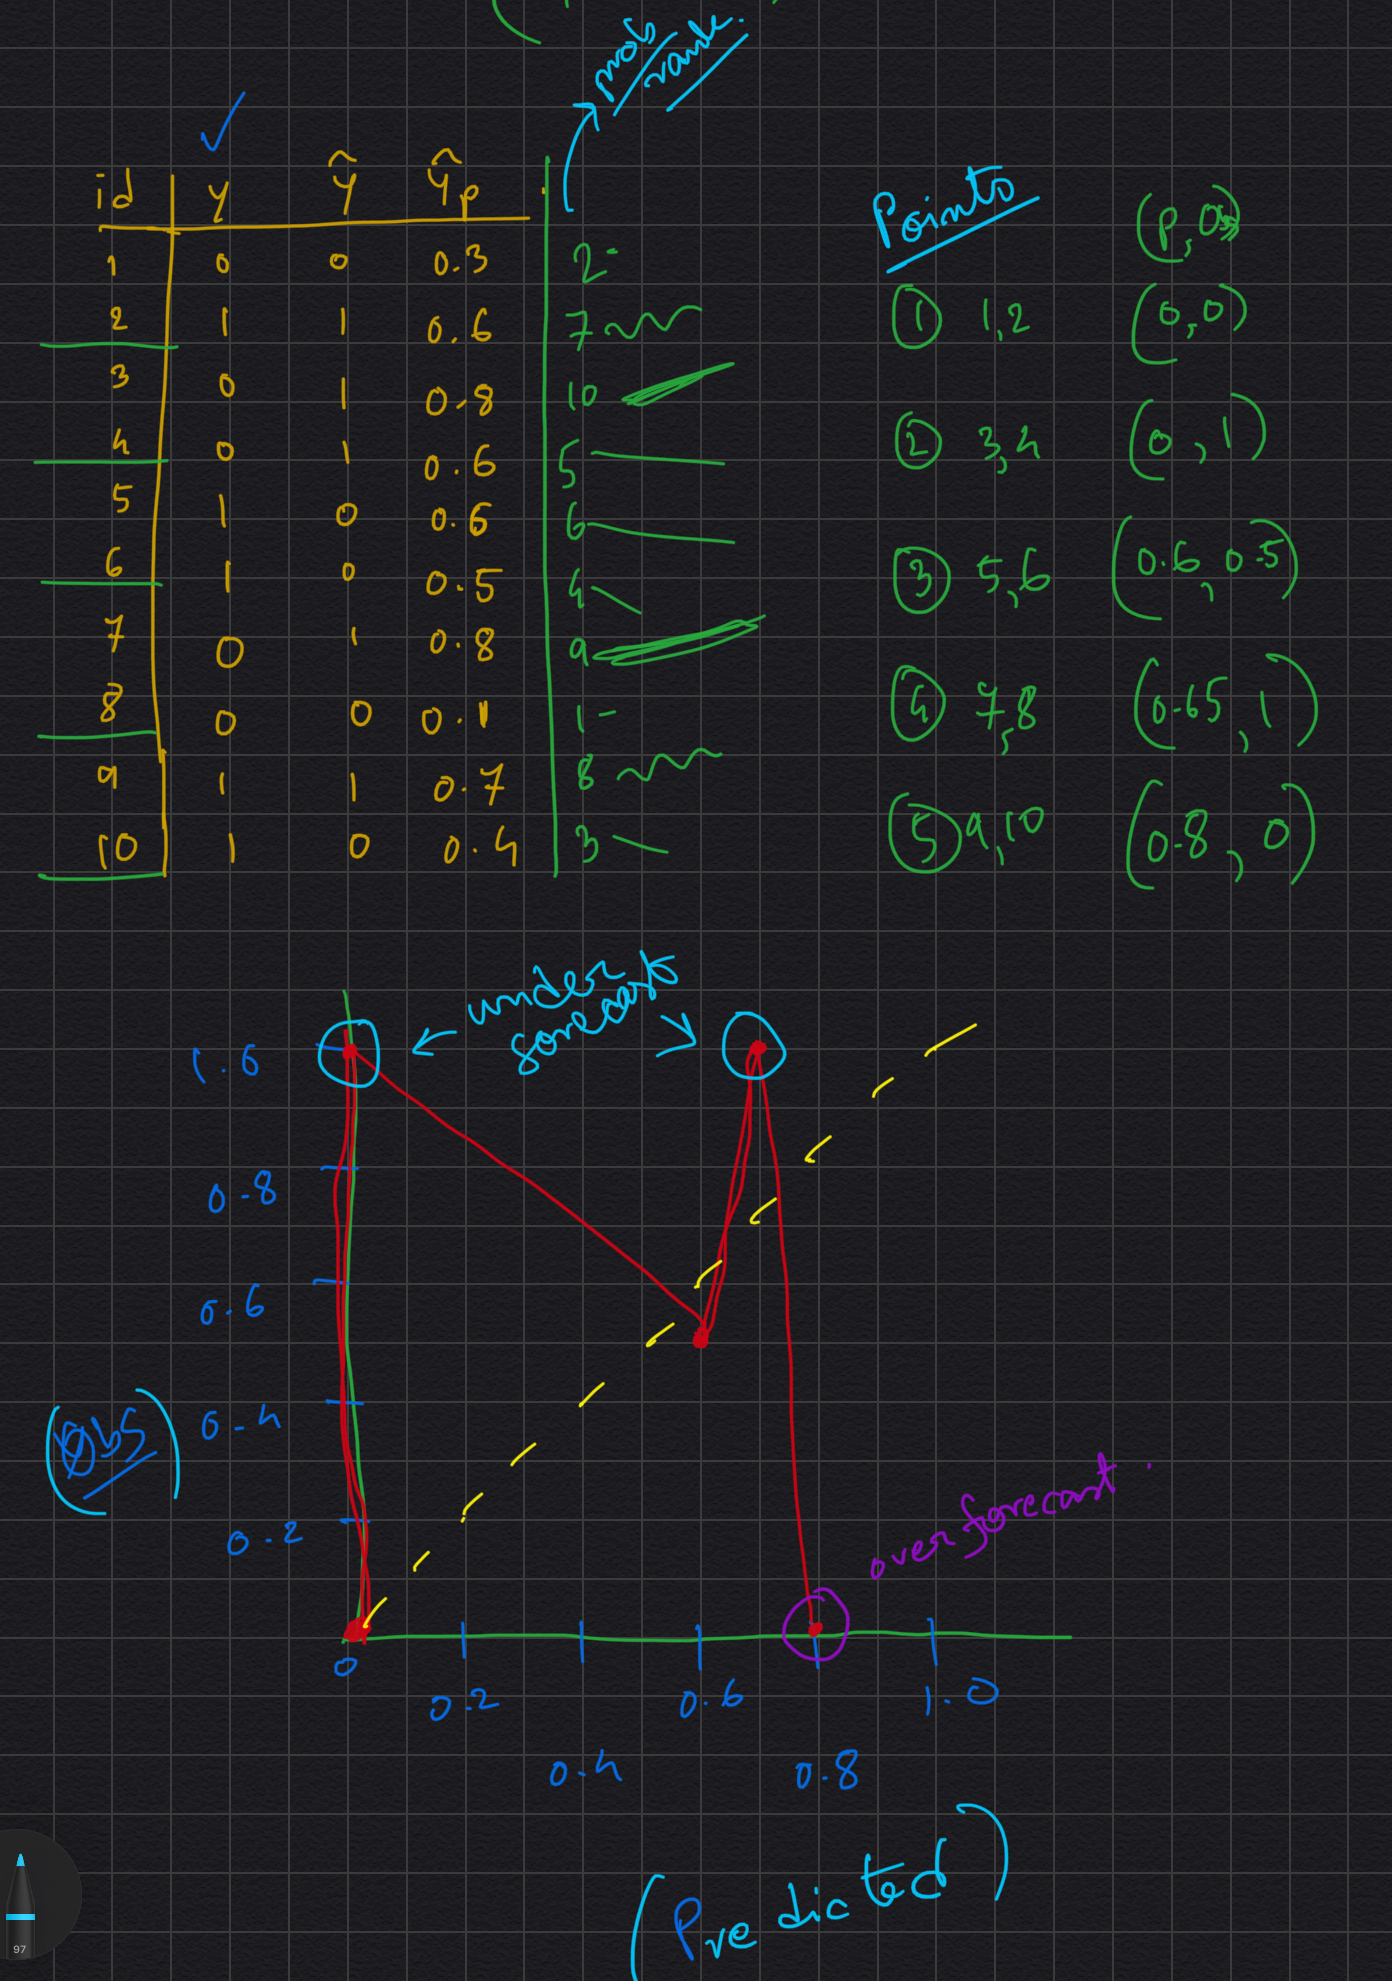 prob
rank.
id y ŷ ŷp
1 0 0 0.3 2
2 1 1 0.6 7
3 0 1 0.8 10
4 0 1 0.6 5
5 1 0 0.6 6
6 1 0 0.5 4
7 0 1 0.8 9
8 0 0 0.1 1
9 1 1 0.7 8
10 1 0 0.4 3
Points (P, O)
① 1,2 (0,0)
② 3,4 (0,1)
③ 5,6 (0.6, 0.5)
④ 7,8 (0.65, 1)
⑤ 9,10 (0.8, 0)
under
forecast
1.0
0.8
0.6
(Obs)
0.4
0.2
over forecast
0
0.2
0.4
0.6
0.8
1.0
(Predicted)
97